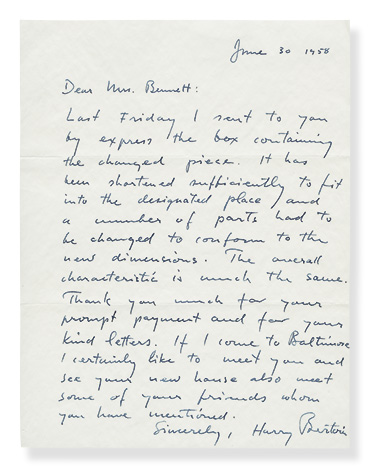 June 30 1958
Dear Mrs. Bennett:
Last Friday I sent to you
by express the box containing
the changed piece. It has
been shortened sufficiently to fit
into the designated place and
a number of parts had to
be changed to conform to the
new dimensions. The overall
characteristic is much the same.
Thank you much for your
prompt payment and for your
kind letters. If I come to Baltimore
I certainly like to meet you and
see your new house also meet
some of your friends whom
you have mentioned.
Sincerely, Harry Bertoia